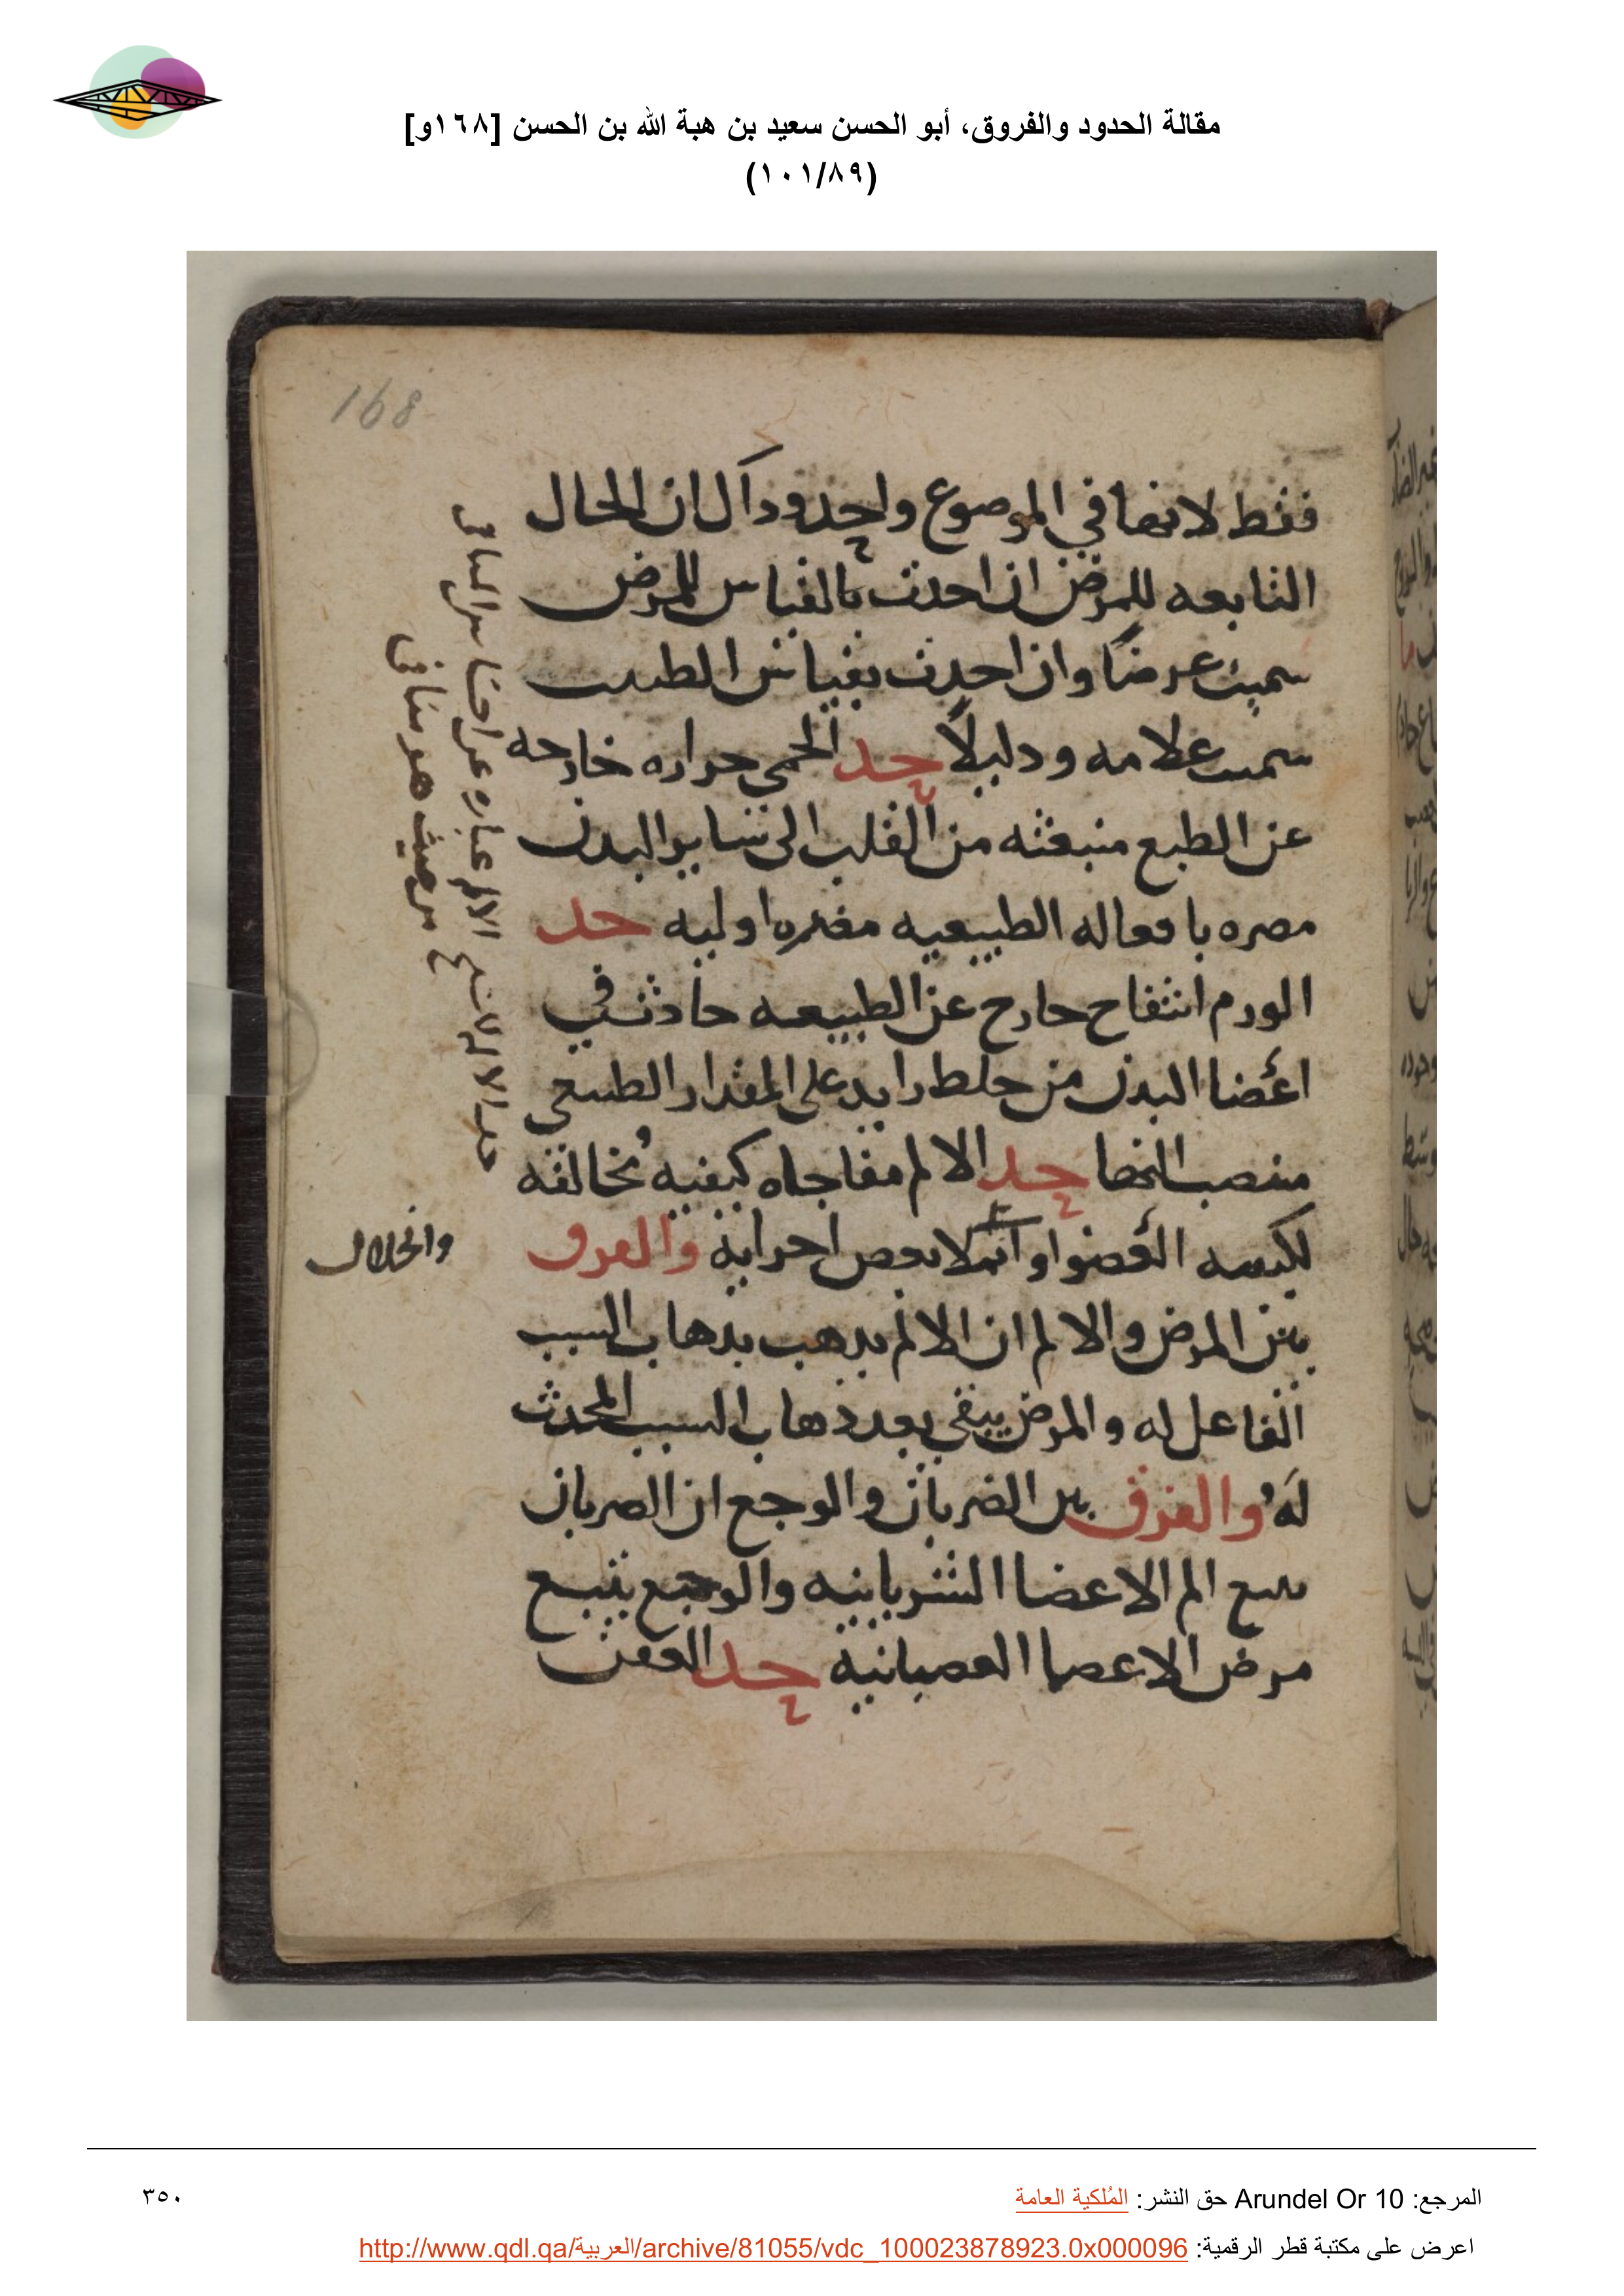 مقالة الحدود والفروق، أبو الحسن سعيد بن هبة الله بن الحسن [١٦٨و]
(١٠١/٨٩)
168
فقط لانها في الموضوع واحد وذاك ان الحال
التابعه للمرض ان احدث بالقياس للمرض
سميت عرضًا وان احدث بقياس الطبيب
سميت علامه ودليلًا حد الحمى حراره خارجه
عن الطبع منبعثه من القلب الى ساير البدن
مضره بافعاله الطبيعيه مضره اوليه حد
الورم انتفاخ خارج عن الطبيعه حادث في
اعضا البدن من خلط زايد على المقدار الطبيعي
منصب اليها حد الالم مفاجاه كيفيه مخالفه
لكيفيه العضو او لبعض اجزايه والفرق
بين المرض والالم ان الالم يذهب بذهاب السبب
الفاعل له والمرض يبقى بعد ذهاب السبب المحدث
لهُ والفرق بين الضربان والوجع ان الضربان
يتبع الم الاعضا الشريانيه والوجع يتبع
مرض الاعضا العصبانيه حد العفن
حد الالم الالم عباره عن احساس المنافي
من حيث هو منافي
وانحلال
المرجع: Arundel Or 10 حق النشر: المُلكية العامة
٣٥٠
اعرض على مكتبة قطر الرقمية: http://www.qdl.qa/العربية/archive/81055/vdc_100023878923.0x000096